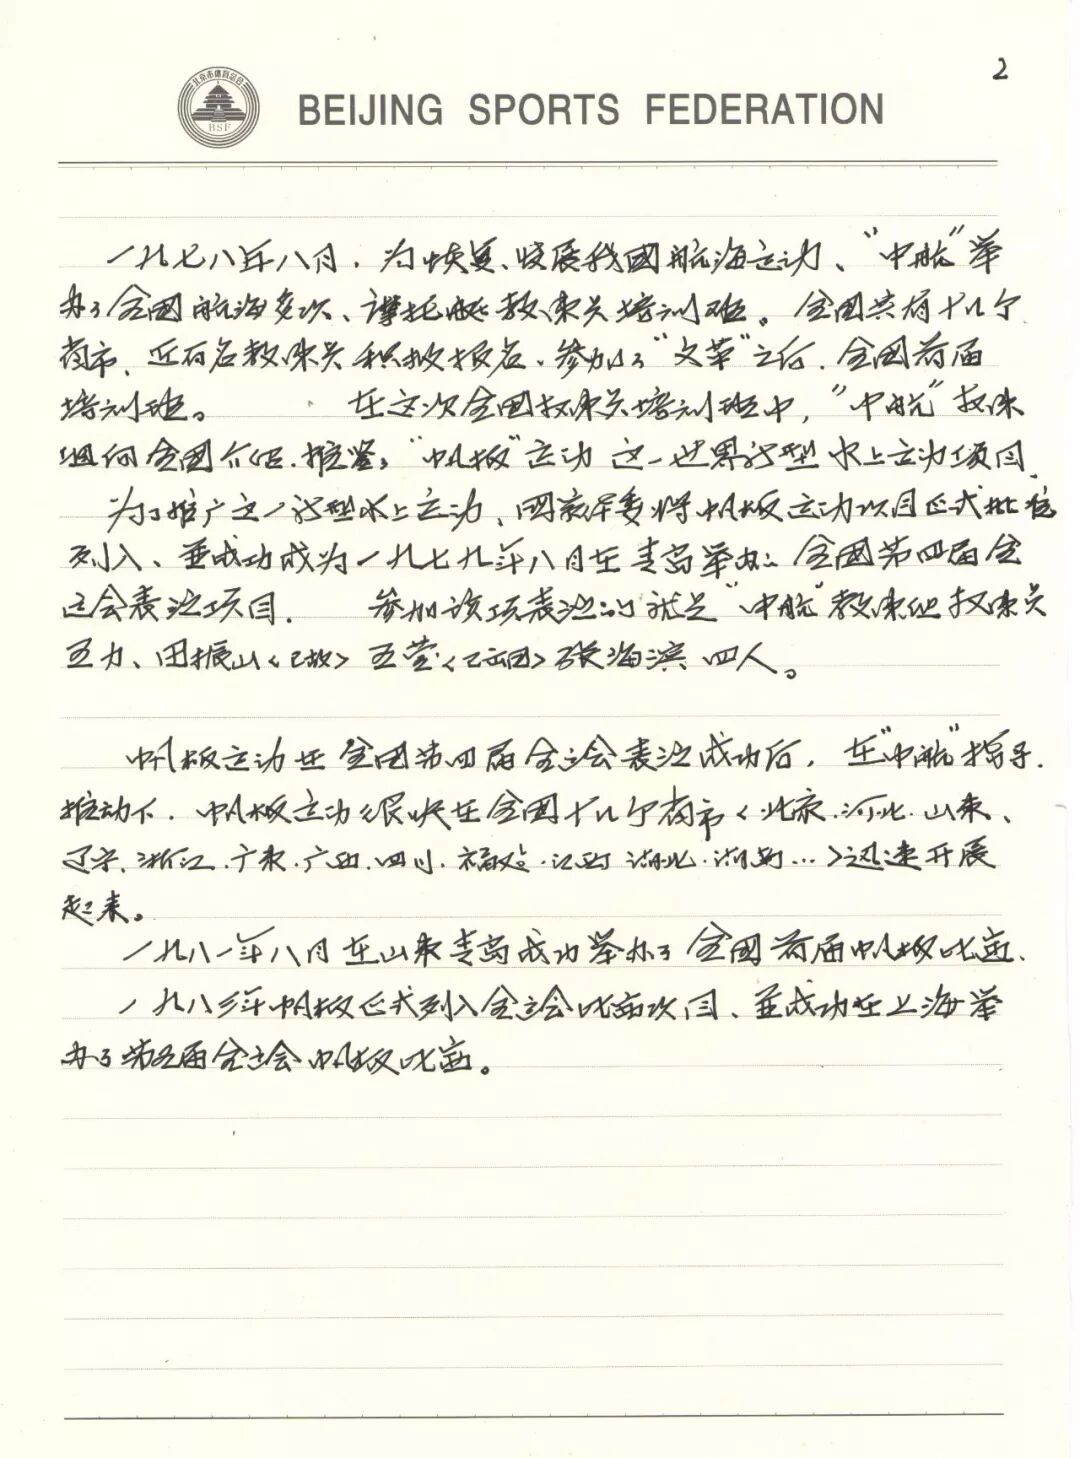 2
北京市体育总会
BSF
BEIJING SPORTS FEDERATION
一九七八年八月，为恢复、发展我國航海运动、“中航”举
办了全国航海多项、摩托艇教练员培训班。全国共有十几个
省市、近百名教练员积极报名、参加了“文革”之后，全国首届
培训班。 在这次全国教练员培训班中，“中航”教练
组向全国介绍、推鉴：“帆板”运动这一世界新型水上运动项目，
为了推广这一新型水上运动、国家体委将帆板运动项目正式批准
列入、并成功成为一九七九年八月在青岛举办的全国第四届全
运会表演项目。 参加该项表演的就是“中航”教练组教练员
王力、田振山<已故> 王莹<已出国> 张海滨 四人。
帆板运动在全国第四届全运会表演成功后，在“中航”指导、
推动下，帆板运动很快在全国十几个省市<北京、河北、山东、
辽宁、浙江、广东、广西、四川、福建、江西 湖北、湖南...>迅速开展
起来。
一九八一年八月在山东青岛成功举办了全国首届帆板比赛、
一九八三年帆板正式列入全运会比赛项目、并成功在上海举
办了第五届全运会帆板比赛。